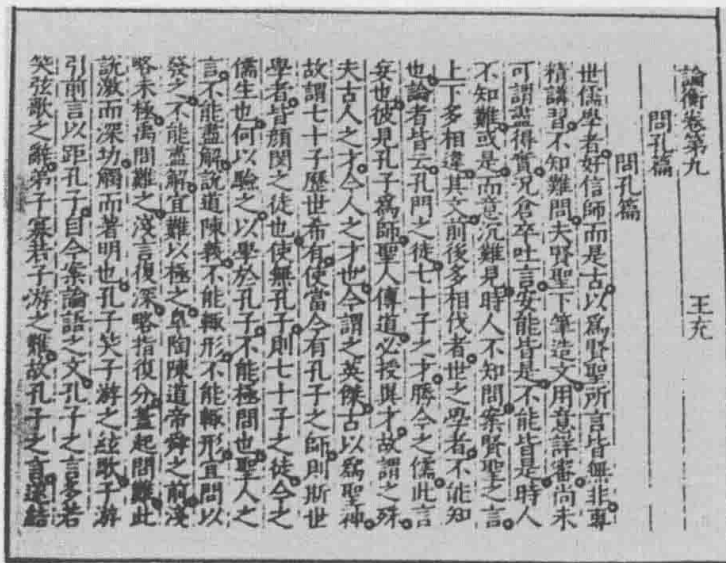 論衡卷第九 王充
問孔篇
問孔篇
世儒學者好信師而是古以爲賢聖所言皆無非專
精講習不知難問夫賢聖下筆造文用意詳審尚未
可謂盡得實況倉卒吐言安能皆是不能皆是時人
不知難或是而意沉難見時人不知問案賢聖之言
上下多相違其文前後多相伐者世之學者不能知
也論者皆云孔門之徒七十子之才勝今之儒此言
妄也彼見孔子爲師聖人傳道必授異才故謂之殊
夫古人之才今人之才也今謂之英傑古以爲聖神
故謂七十子歷世希有使當今有孔子之師則斯世
學者皆顏閔之徒也使無孔子則七十子之徒今之
儒生也何以驗之以學於孔子不能極問也聖人之
言不能盡解說道陳義不能輒形不能輒形宜問以
發之不能盡解宜難以極之皋陶陳道帝舜之前淺
略未極禹問難之淺言復深略指復分蓋起問難此
說激而深切觸而著明也孔子笑子游之弦歌子游
引前言以距孔子自今案論語之文孔子之言多若
笑弦歌之辭弟子寡若子游之難故孔子之言遂結